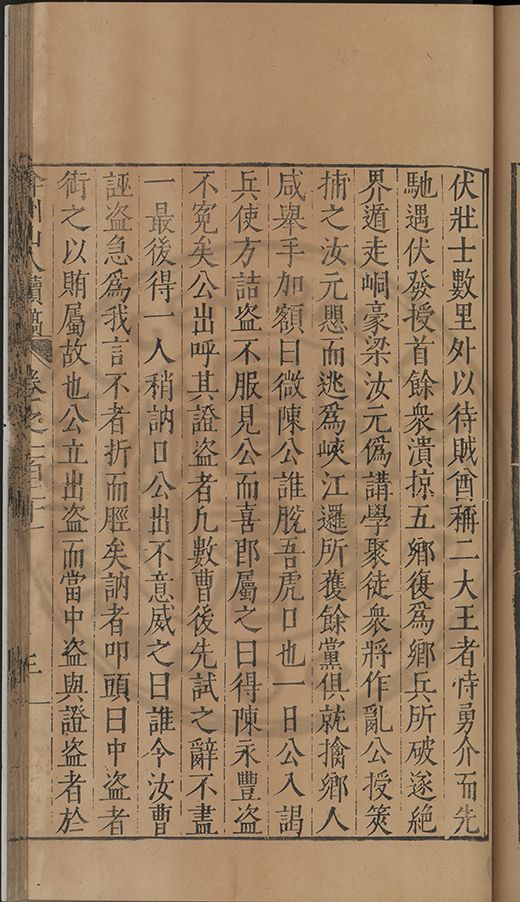 伏壯士數里外以待賊酋稱二大王者恃勇介而先
馳遇伏發授首餘衆潰掠五鄉復爲鄉兵所破遂絶
界遁走峒豪梁汝元僞講學聚徒衆將作亂公授筴
捕之汝元思而逃爲峽江邏所獲餘黨俱就擒鄉人
咸舉手加額曰微陳公誰脫吾虎口也一日公入謁
兵使方詰盗不服見公而喜卽屬之曰得陳永豐盗
不寃矣公出呼其證盗者凡數曹後先試之辭不盡
一最後得一人稍訥口公出不意威之曰誰令汝曹
誣盗急爲我言不者折而脛矣訥者叩頭曰中盗者
銜之以賄屬故也公立出盗而當中盗與證盗者於
弇州山人續藁 卷之一百二十一